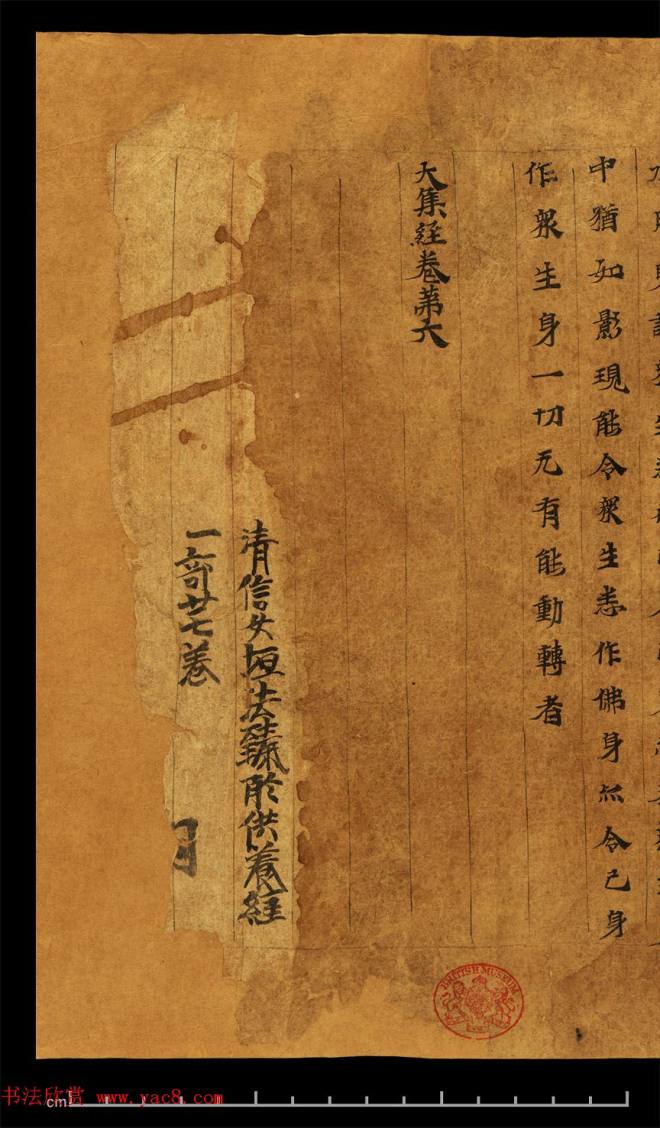 中猶如影現能令眾生悉作佛身令己身
作眾生身一切无有能動轉者
大集經卷第六
清信女垣法所供養經
一廿七卷
月
BRITISH MUSEUM
cm
书法欣赏 www.yac8.com